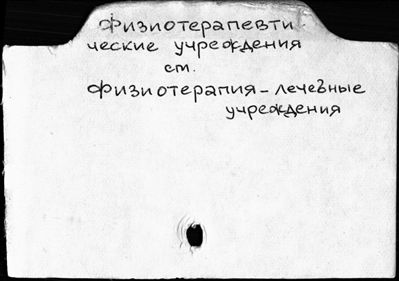 Физиотерапевти
ческие учреждения
см.
Физиотерапия - лечебные
учреждения